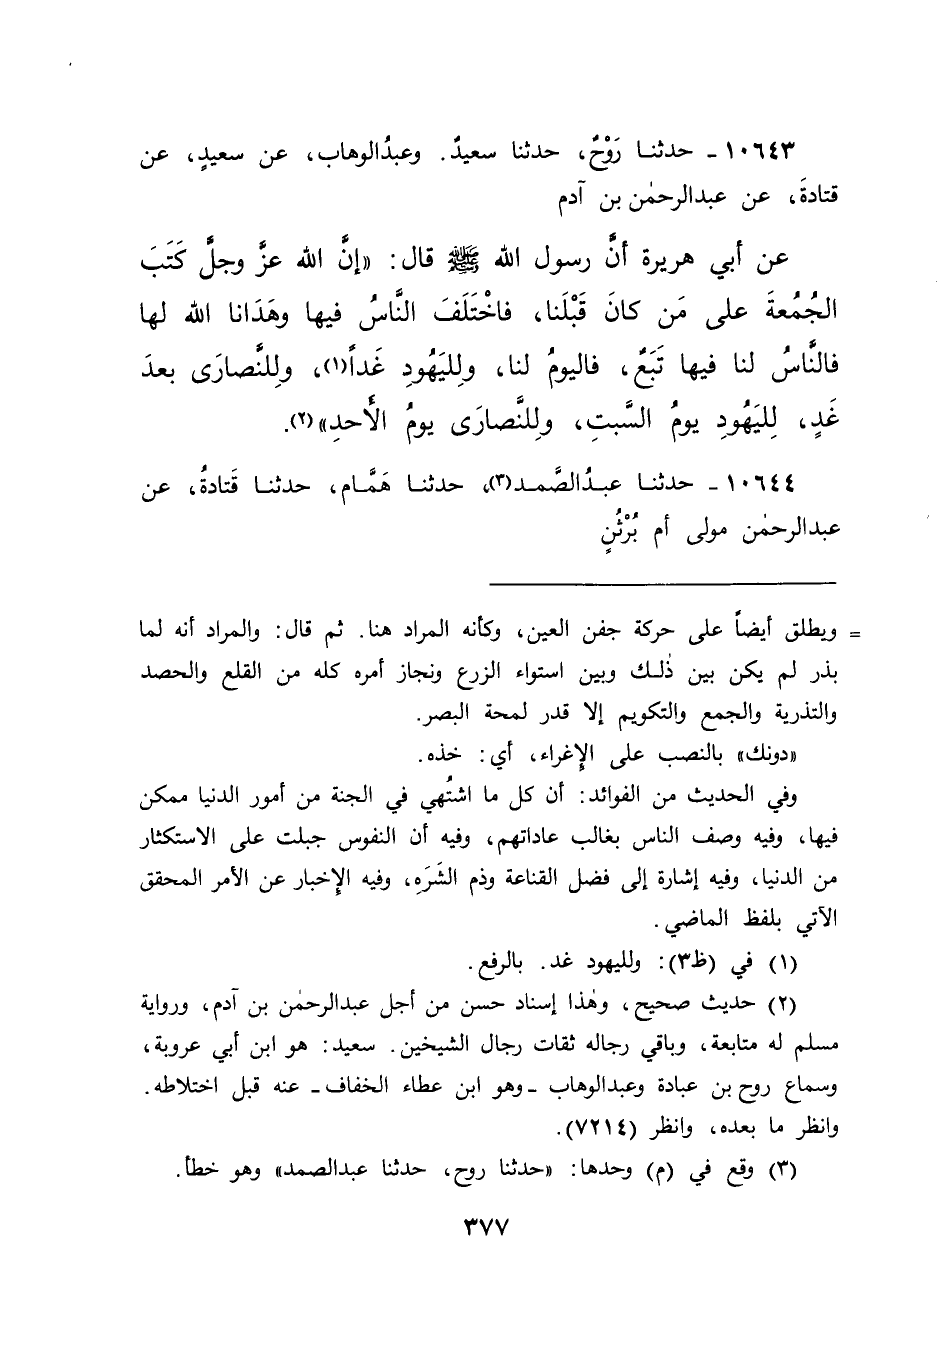 ١٠٦٤٣ ـ حدثنـا رَوْحٌ، حدثنا سعيدٌ. وعبدُالوهاب، عن سعيدٍ، عن
قتادةَ، عن عبدالرحمٰن بن آدم
عن أبي هريرة أنَّ رسول الله ﷺ قال: «إنَّ الله عزَّ وجلَّ كَتَبَ
الجُمُعةَ على مَن كانَ قَبْلَنا، فاخْتَلَفَ النَّاسُ فيها وهَدَانا الله لها
فالنَّاسُ لنا فيها تَبَعٌ، فاليومُ لنا، ولِليَهُودِ غَداً(١)، ولِلنَّصارَى بعدَ
غَدٍ، لِليَهُودِ يومُ السَّبتِ، ولِلنَّصارَى يومُ الأَحدِ»(٢).
١٠٦٤٤ ـ حدثنـا عبـدُالصَّمـد(٣)، حدثنـا هَمَّـام، حدثنـا قَتادةُ، عن
عبدالرحمٰن مولى أم بُرْثُنٍ
= ويطلق أيضاً على حركة جفن العين، وكأنه المراد هنا. ثم قال: والمراد أنه لما
بذر لم يكن بين ذٰلـك وبين استواء الزرع ونجاز أمره كله من القلع والحصد
والتذرية والجمع والتكويم إلا قدر لمحة البصر.
«دونك» بالنصب على الإغراء، أي: خذه.
وفي الحديث من الفوائد: أن كل ما اشتُهي في الجنة من أمور الدنيا ممكن
فيها، وفيه وصف الناس بغالب عاداتهم، وفيه أن النفوس جبلت على الاستكثار
من الدنيا، وفيه إشارة إلى فضل القناعة وذم الشَرَهِ، وفيه الإخبار عن الأمر المحقق
الآتي بلفظ الماضي.
(١) في (ظ٣): ولليهود غد. بالرفع.
(٢) حديث صحيح، وهٰذا إسناد حسن من أجل عبدالرحمٰن بن آدم، ورواية
مسلم له متابعة، وباقي رجاله ثقات رجال الشيخين. سعيد: هو ابن أبي عروبة،
وسماع روح بن عبادة وعبدالوهاب ـ وهو ابن عطاء الخفاف ـ عنه قبل اختلاطه.
وانظر ما بعده، وانظر (٧٢١٤).
(٣) وقع في (م) وحدها: «حدثنا روح، حدثنا عبدالصمد» وهو خطأ.
٣٧٧